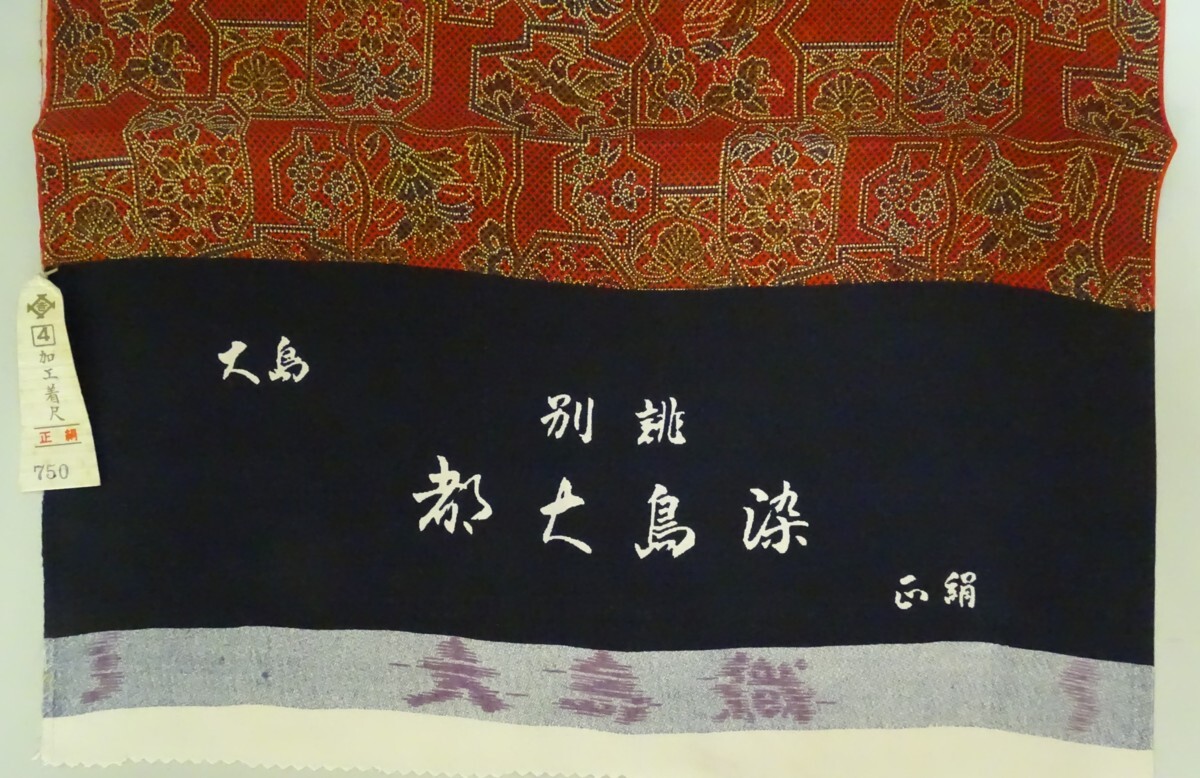 4
加工着尺
正絹
750
大島
別誂
都大島染
正絹
大島織